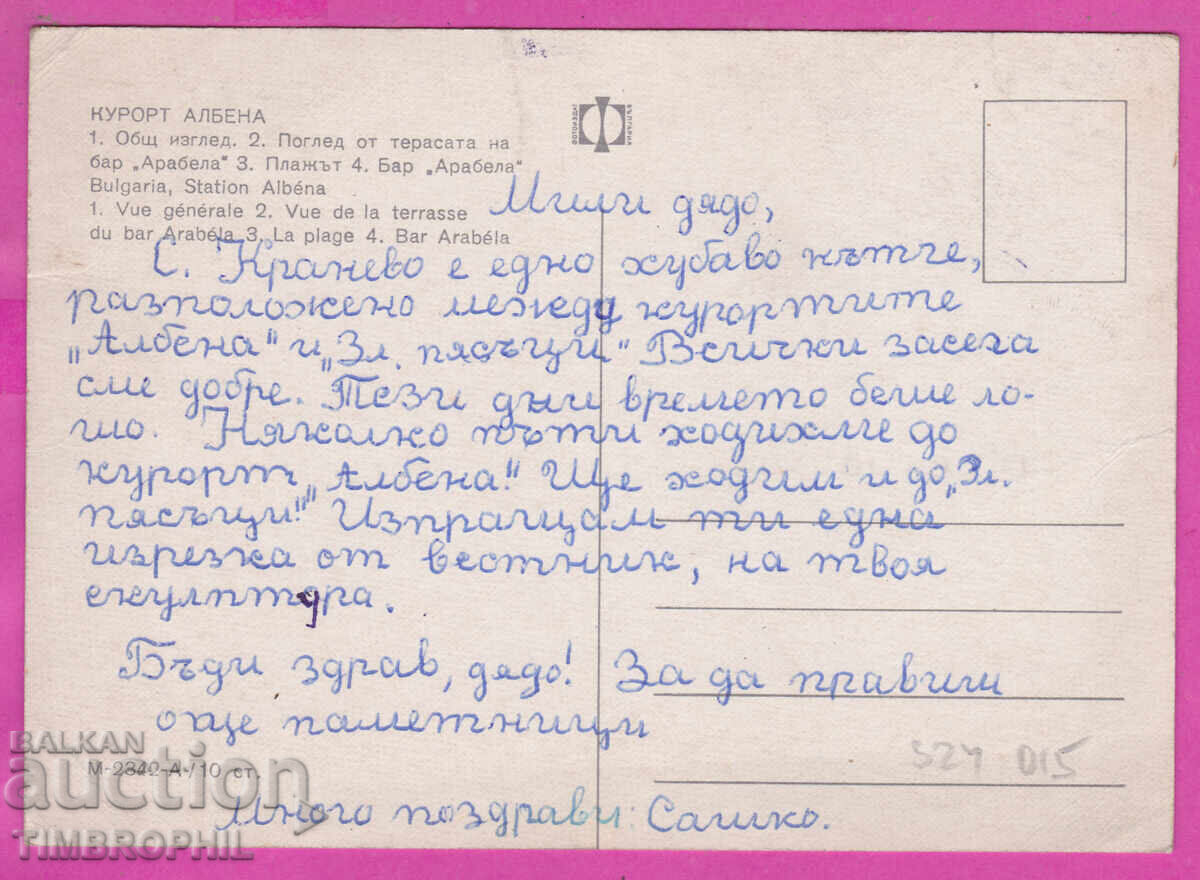 КУРОРТ АЛБЕНА
1. Общ изглед. 2. Поглед от терасата на
бар „Арабела" 3. Плажът 4. Бар „Арабела"
Bulgaria, Station Albéna
1. Vue générale 2. Vue de la terrasse
du bar Arabéla 3. La plage 4. Bar Arabéla
ФОТОИЗДАТ
БЪЛГАРИЯ
Мили дядо,
С. Кранево е едно хубаво кътче,
разположено между курортите
„Албена" и „Зл. пясъци" Всички засега
сме добре. Тези дни времето беше ло-
шо. Няколко пъти ходихме до
курорт „Албена!" Ще ходим и до „Зл.
пясъци!" Изпращам ти една
изрезка от вестник, на твоя
скулптура.
Бъди здрав, дядо! За да правиш
още паметници
М-2342-А-/10 ст.
Много поздрави: Сашко.
S24 015
BALKAN
auction
TIMBROPHIL